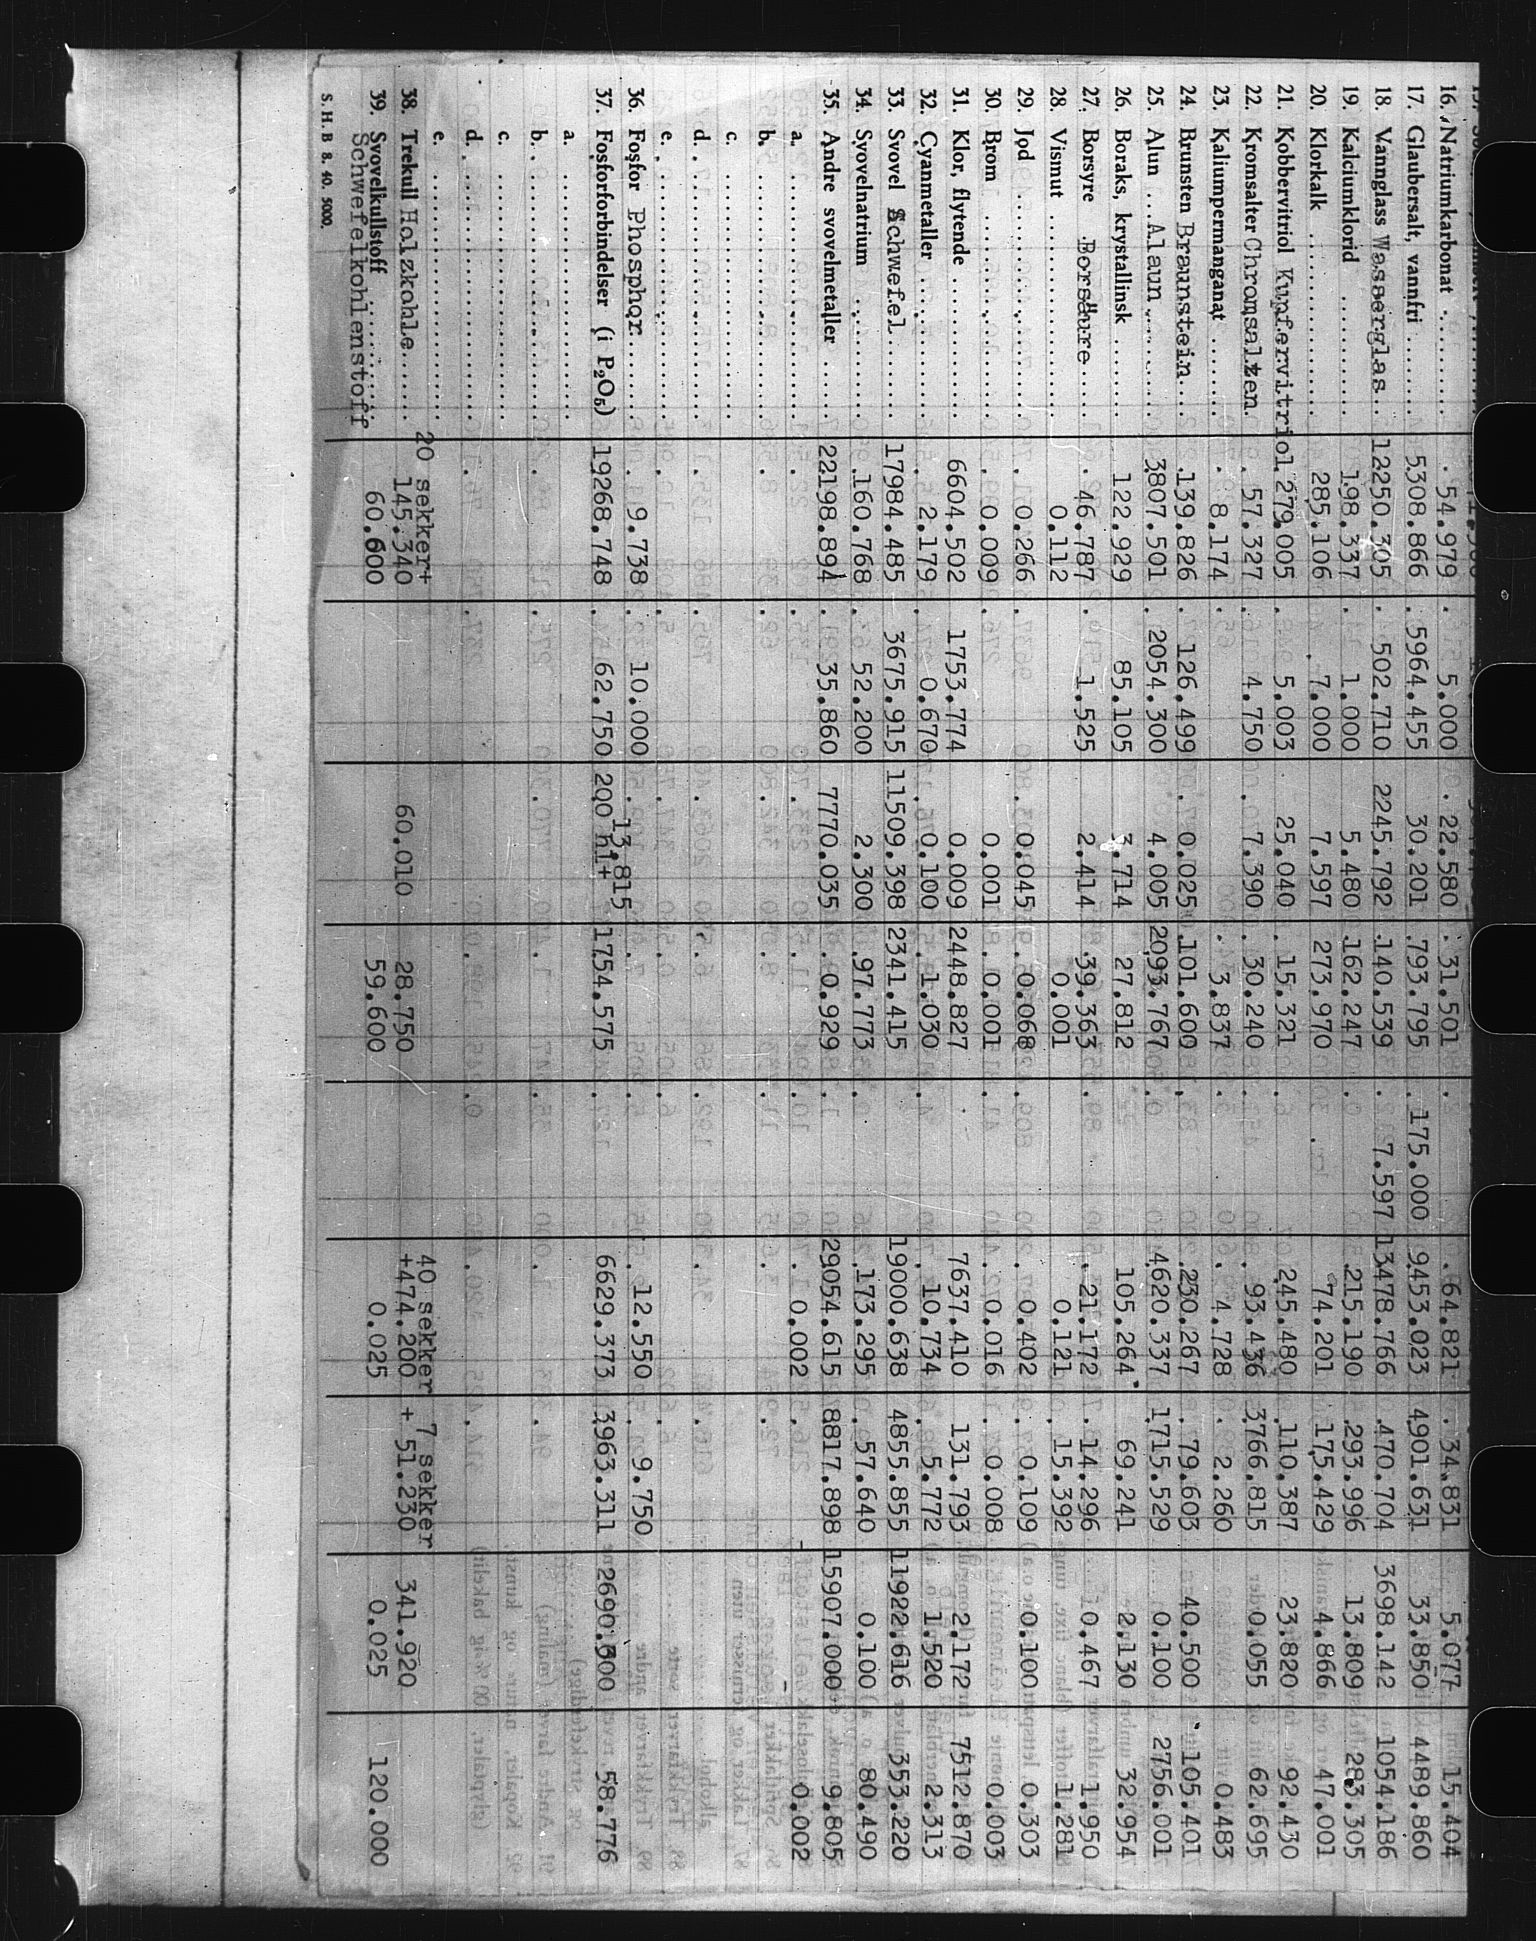 16. Natriumkarbonat .......... 54.979 5.000 22.580 31.501 64.821 34.831 5.077 15.404
17. Glaubersalt, vannfri ....... 5308.866 5964.455 30.201 793.795 175.000 9453.023 4901.631 33.850 4489.860
18. Vannglass Wasserglas 12250.305 502.710 2245.792 140.539 7.597 13478.766 470.704 3698.142 1054.186
19. Kalciumklorid ............ 198.337 1.000 5.480 162.247 215.190 293.996 13.809 283.305
20. Klorkalk .................. 285.106 7.000 7.597 273.970 74.201 175.429 4.866 47.001
21. Kobbervitriol Kupfervitriol 279.005 5.003 25.040 15.321 245.480 110.387 23.820 92.430
22. Kromsalter Chromsalzen 57.327 4.750 7.390 30.240 93.436 3766.815 0.055 62.695
23. Kaliumpermanganat ........ 8.174 3.837 4.728 2.260 0.483
24. Brunsten Braunstein 139.826 126.499 0.025 101.600 230.267 79.603 40.500 105.401
25. Alun ... Alaun ........ 3807.501 2054.300 4.005 2093.767 4620.337 1715.529 0.100 2756.001
26. Boraks, krystallinsk ........ 122.929 85.105 3.714 27.812 105.264 69.241 2.130 32.954
27. Borsyre Borsäure ..... 46.787 1.525 2.414 39.363 21.172 14.296 0.467 1.950
28. Vismut .................. 0.112 0.001 0.121 15.392 1.281
29. Jod ...................... 0.266 0.045 0.068 0.402 0.109 0.100 0.303
30. Brom .................... 0.009 0.001 0.001 0.016 0.008 0.003
31. Klor, flytende .............. 6604.502 1753.774 0.009 2448.827 7637.410 131.793 2.172 7512.870
32. Cyanmetaller .............. 2.179 0.670 0.100 1.030 10.734 5.772 1.520 2.313
33. Svovel Schwefel ........ 17984.485 3675.915 11509.398 2341.415 19000.638 4855.855 11922.616 353.220
34. Svovelnatrium ............ 160.768 52.200 2.300 97.773 173.295 57.640 0.100 80.490
35. Andre svovelmetaller ...... 22198.894 35.860 7770.035 0.929 29054.615 8817.898 15907.000 9.805
a. ...................... 0.002 - - 0.002
b. ......................
c. ......................
d. ......................
e. ......................
36. Fosfor Phosphor ....... 9.738 10.000 13.815 12.550 9.750
37. Fosforforbindelser (i P₂O₅) 19268.748 62.750 200 hl+ 1754.575 6629.373 3963.311 2690.600 58.776
a. ......................
b. ......................
c. ......................
d. ......................
e. ......................
20 sekker+ 40 sekker 7 sekker
38. Trekull Holzkohle ....... 145.340 60,010 28.750 +474.200 + 51.230 341.920
39. Svovelkullstoff ............ 60.600 59.600 0.025 0.025 120.000
Schwefelkohlenstoff
S. H. B 8. 40. 5000.